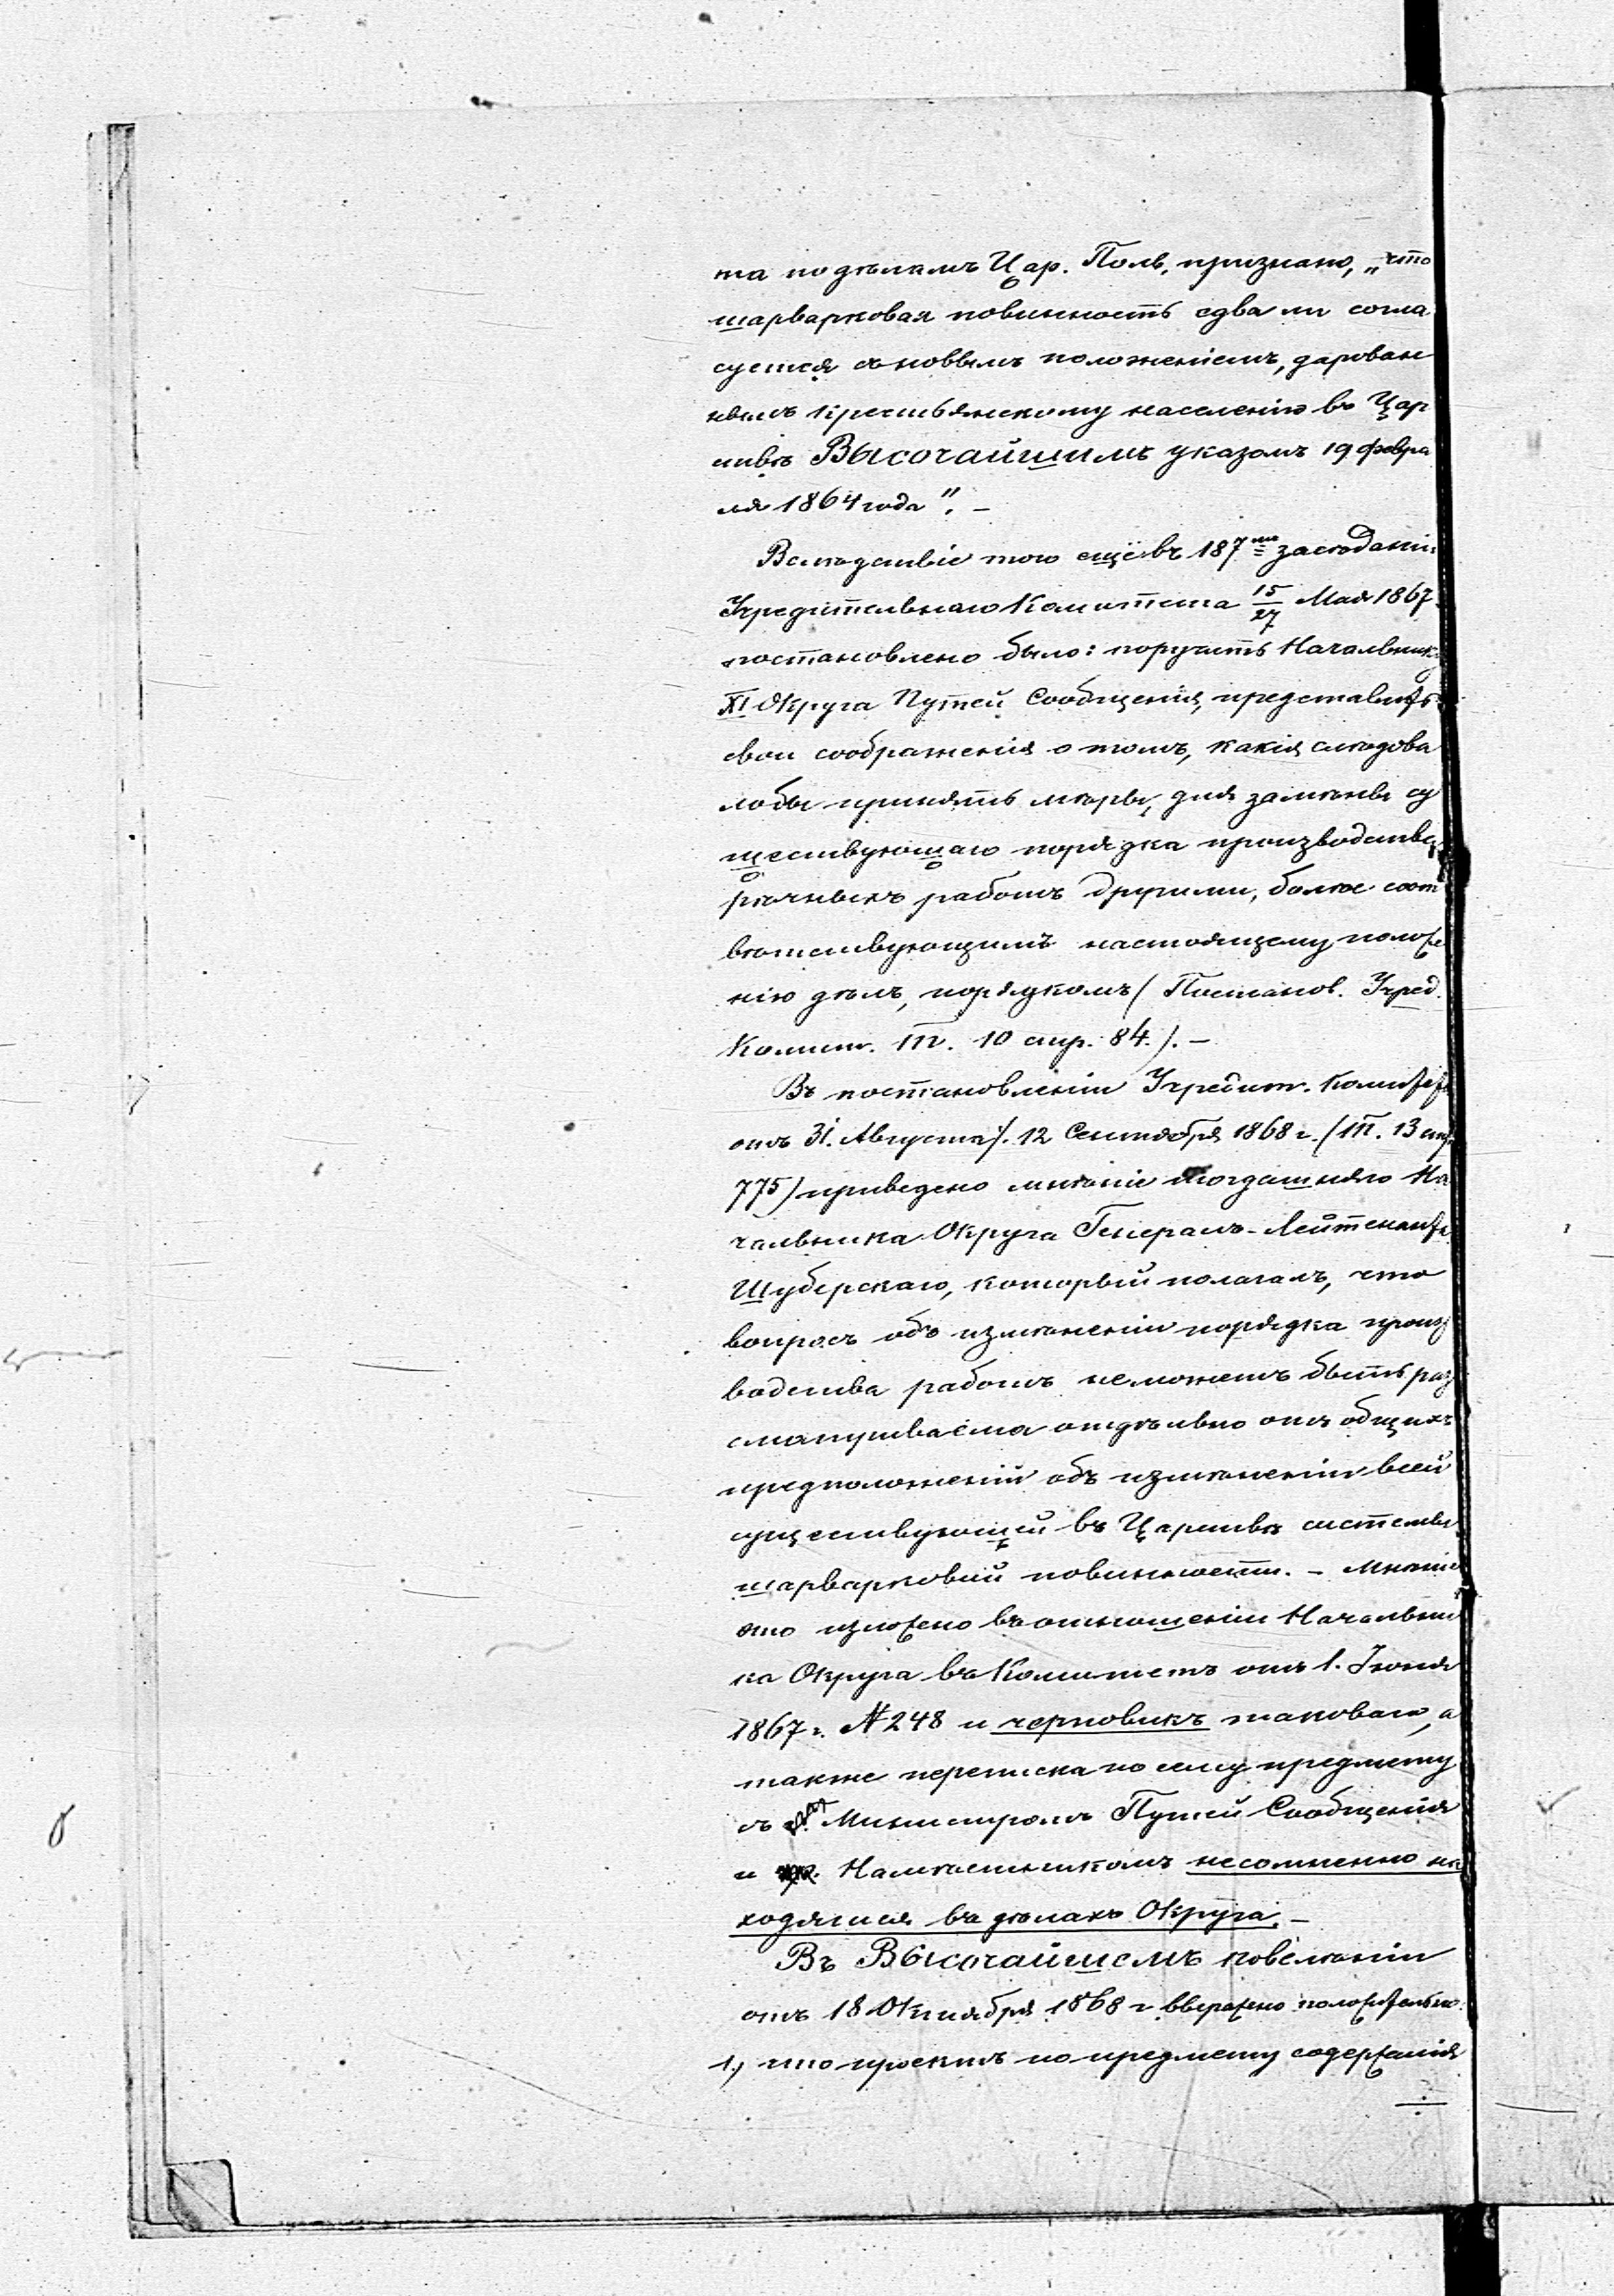 та по дѣламъ Цар. Поль. признано, „что
шарварковая повинность едва ли согла
суется съ новымъ положеніемъ, дарован
нымъ крестьянскому населенію въ Цар
ствѣ Высочайшимъ указомъ 19 февра
ля 1864 года". —
Вслѣдствіе того ещё въ 187мъ засѣдані
Учредительнаго Комитета 15/27 Мая 1867
постановлено было: поручить Начальник
XI Округа Путей Сообщенія, представить
свои соображенія о томъ, какія слѣдова
лобы принять мѣры, для замѣны су
ществующаго порядка производства
рѣчныхъ работъ другими, болѣе соот
вѣтствующимъ настоящему полож
нію дѣлъ, порядкомъ (Постанов. Учред.
Комит. Т. 10 стр. 84.). —
Въ постановленіи Учредит. Комитета
отъ 31. Августа/. 12 Сентября 1868 г. (Т. 13 стр.
775) приведено мнѣніе тогдашняго На
чальника Округа Генералъ-Лейтенанта
Шуберскаго, который полагалъ, что
вопросъ объ измѣненіи порядка произ
водства работъ не можетъ быть раз
сматриваема отдѣльно отъ общихъ
предположеній объ измѣненіи всей
существующей въ Царствѣ системы
шарварковой повинности. — Мнѣніе
это изложено въ отношеніи Начальни
ка Округа въ Комитетъ отъ 1. Іюня
1867 г. № 248 и черновикъ таковаго, а
также переписка по сему предмету
съ Министромъ Путей Сообщенія
и Намѣстникомъ несомненно на
ходятся въ дѣлахъ Округа. —
Въ Высочайшемъ повелѣніи
отъ 18 Октября 1868 г. выражено положительно:
1, что проектъ по предмету содержанія